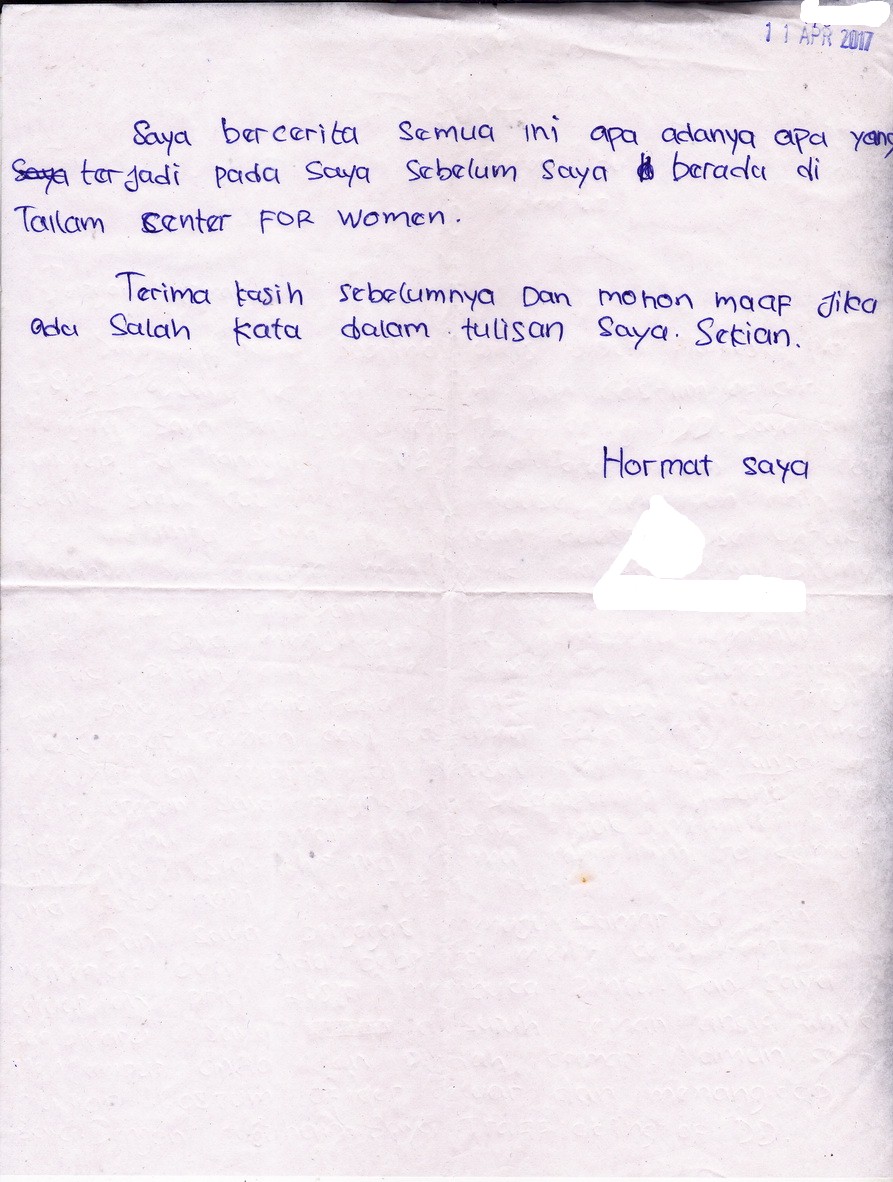 11 APR 2017
Saya bercerita semua ini apa adanya apa yang
Saya terjadi pada saya sebelum saya berada di
Tailam Center FOR women.
Terima kasih sebelumnya Dan mohon maaf Jika
ada salah kata dalam tulisan saya. Sekian.
Hormat saya